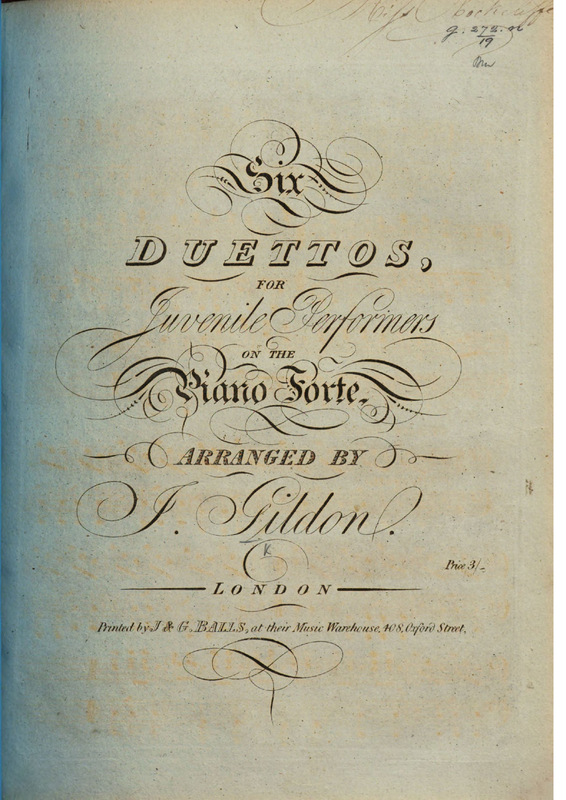 Miss
g. 272. n
19
Six
DUETTOS,
FOR
Juvenile Performers
ON THE
Piano Forte,
ARRANGED BY
J. Gildon.
K
Price 3/-
LONDON
Printed by J & G. BALLS, at their Music Warehouse, 408, Oxford Street,